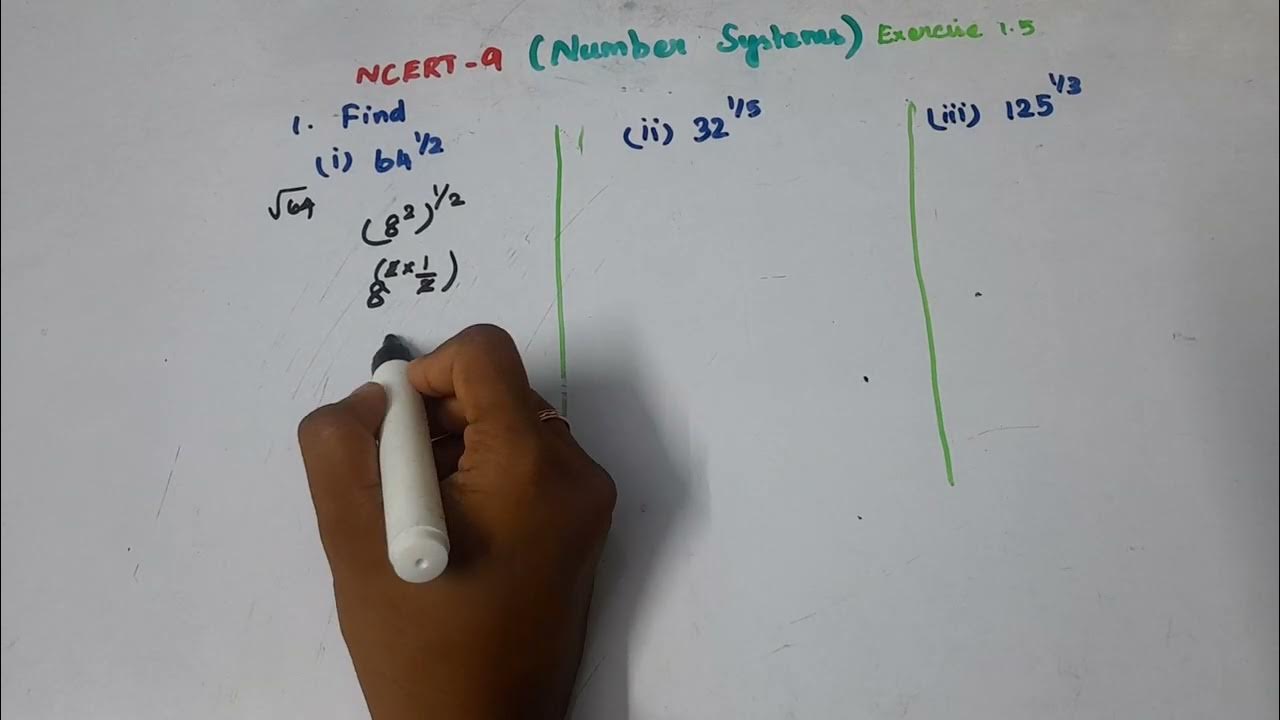 NCERT-9 (Number Systems) Exercise 1.5
1. Find
(i) 64^1/2
√64
(8²)^1/2
8^(2×1/2)
(ii) 32^1/5
(iii) 125^1/3